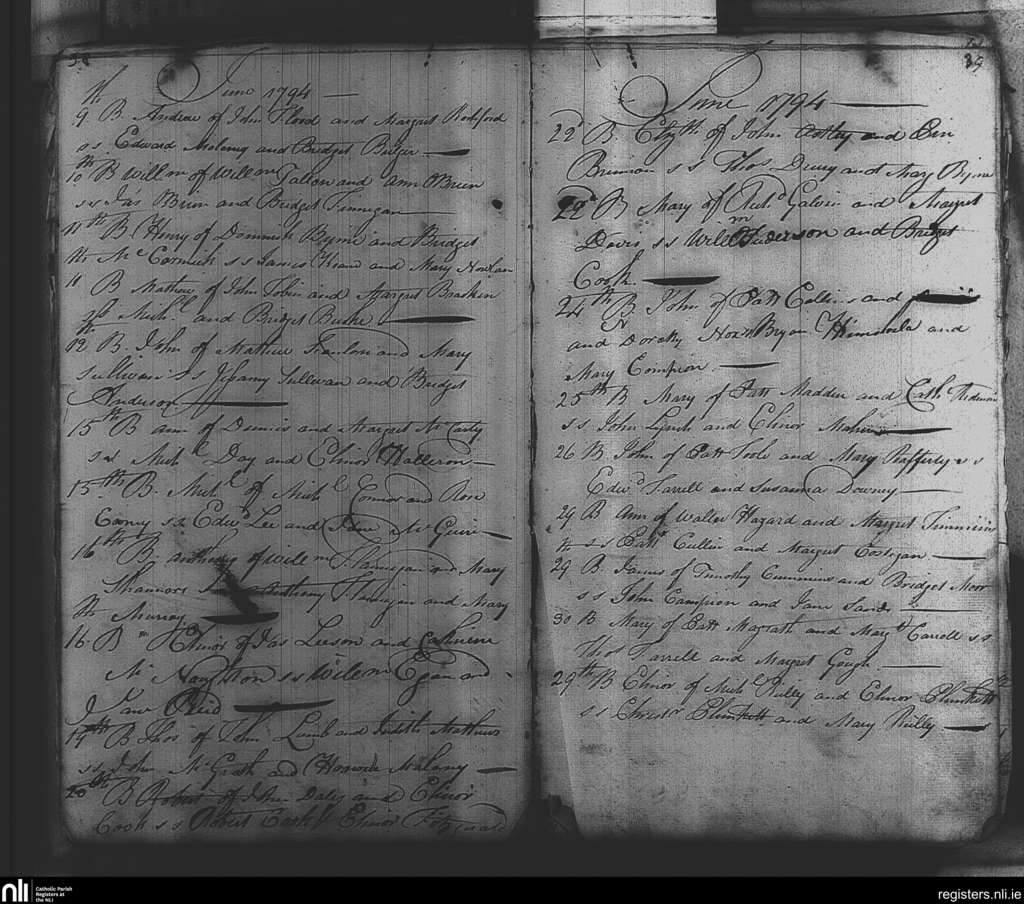 38
June 1794
9th B. Andrew of John Flood and Margret Rochford
s s Edward Moloney and Bridget
10th B Willm of Willm Gallon and Ann O'Brien
s s Jas Brien and Bridget Finnegan
11th B Henry of Dominick Byrne and Bridget
Mc Cormick s s James Keane and Mary Nowlan
11th B Mathew of John Tobin and Margret Bracken
Michl and Bridget Burke
12th B. John of Mathew Scanlon and Mary
Sullivan s s Sullivan and Bridget
Anderson
15th B Ann of Dennis and Margret Mc Carty
s s Michl Day and Elinor Halleron
15th B. Michl of Michl Connor and Rose
s s Edwd Lee and Jane Mc Guire
16th B. Anthony of Willm Flannigan and Mary
Shannon Anthony Flannigan and Mary
Murray
16th B Elinor of Jas Leeson and Catherine
Mc Naughton s s Willm Egan and
Jane Reid
19th B Thos of John Lamb and Judith Mathews
s s John McGrath and Honora Malony
20th B Robert of John Daly and Elinor
Cook s s Robert Cook & Elinor Fitzgerald
39
June 1794
22d B Elizth of John Astley and
Brennan s s Thos and Mary Byrne
22d B Mary of Richd Galvin and Margret
Davis s s Willm Anderson and Bridget
Cook.
24th B. John of Patt Collins and
and Dorothy Bryan and
Mary Compion
25th B Mary of Patt Madden and Cathe Redmon
s s John Lynch and Elinor
26 B. John of Patt Toole and Mary Rafferty s s
Edwd Farrell and Susanna Downey
29 B Ann of Walter Hazard and Margret Timmins
s s Patt Cullin and Margret Costigan
29th B. James of Timothy Cummins and Bridget Moor
s s John Campion and Jane Sands
30 B. Mary of Patt Magrath and Margt Carroll s s
Thos Farrell and Margret Gough
29th B Elinor of Michl Reilly and Elinor Plunkett
s s Christr Plunkett and Mary Reilly
nli
Catholic Parish
Registers at
the NLI
registers.nli.ie